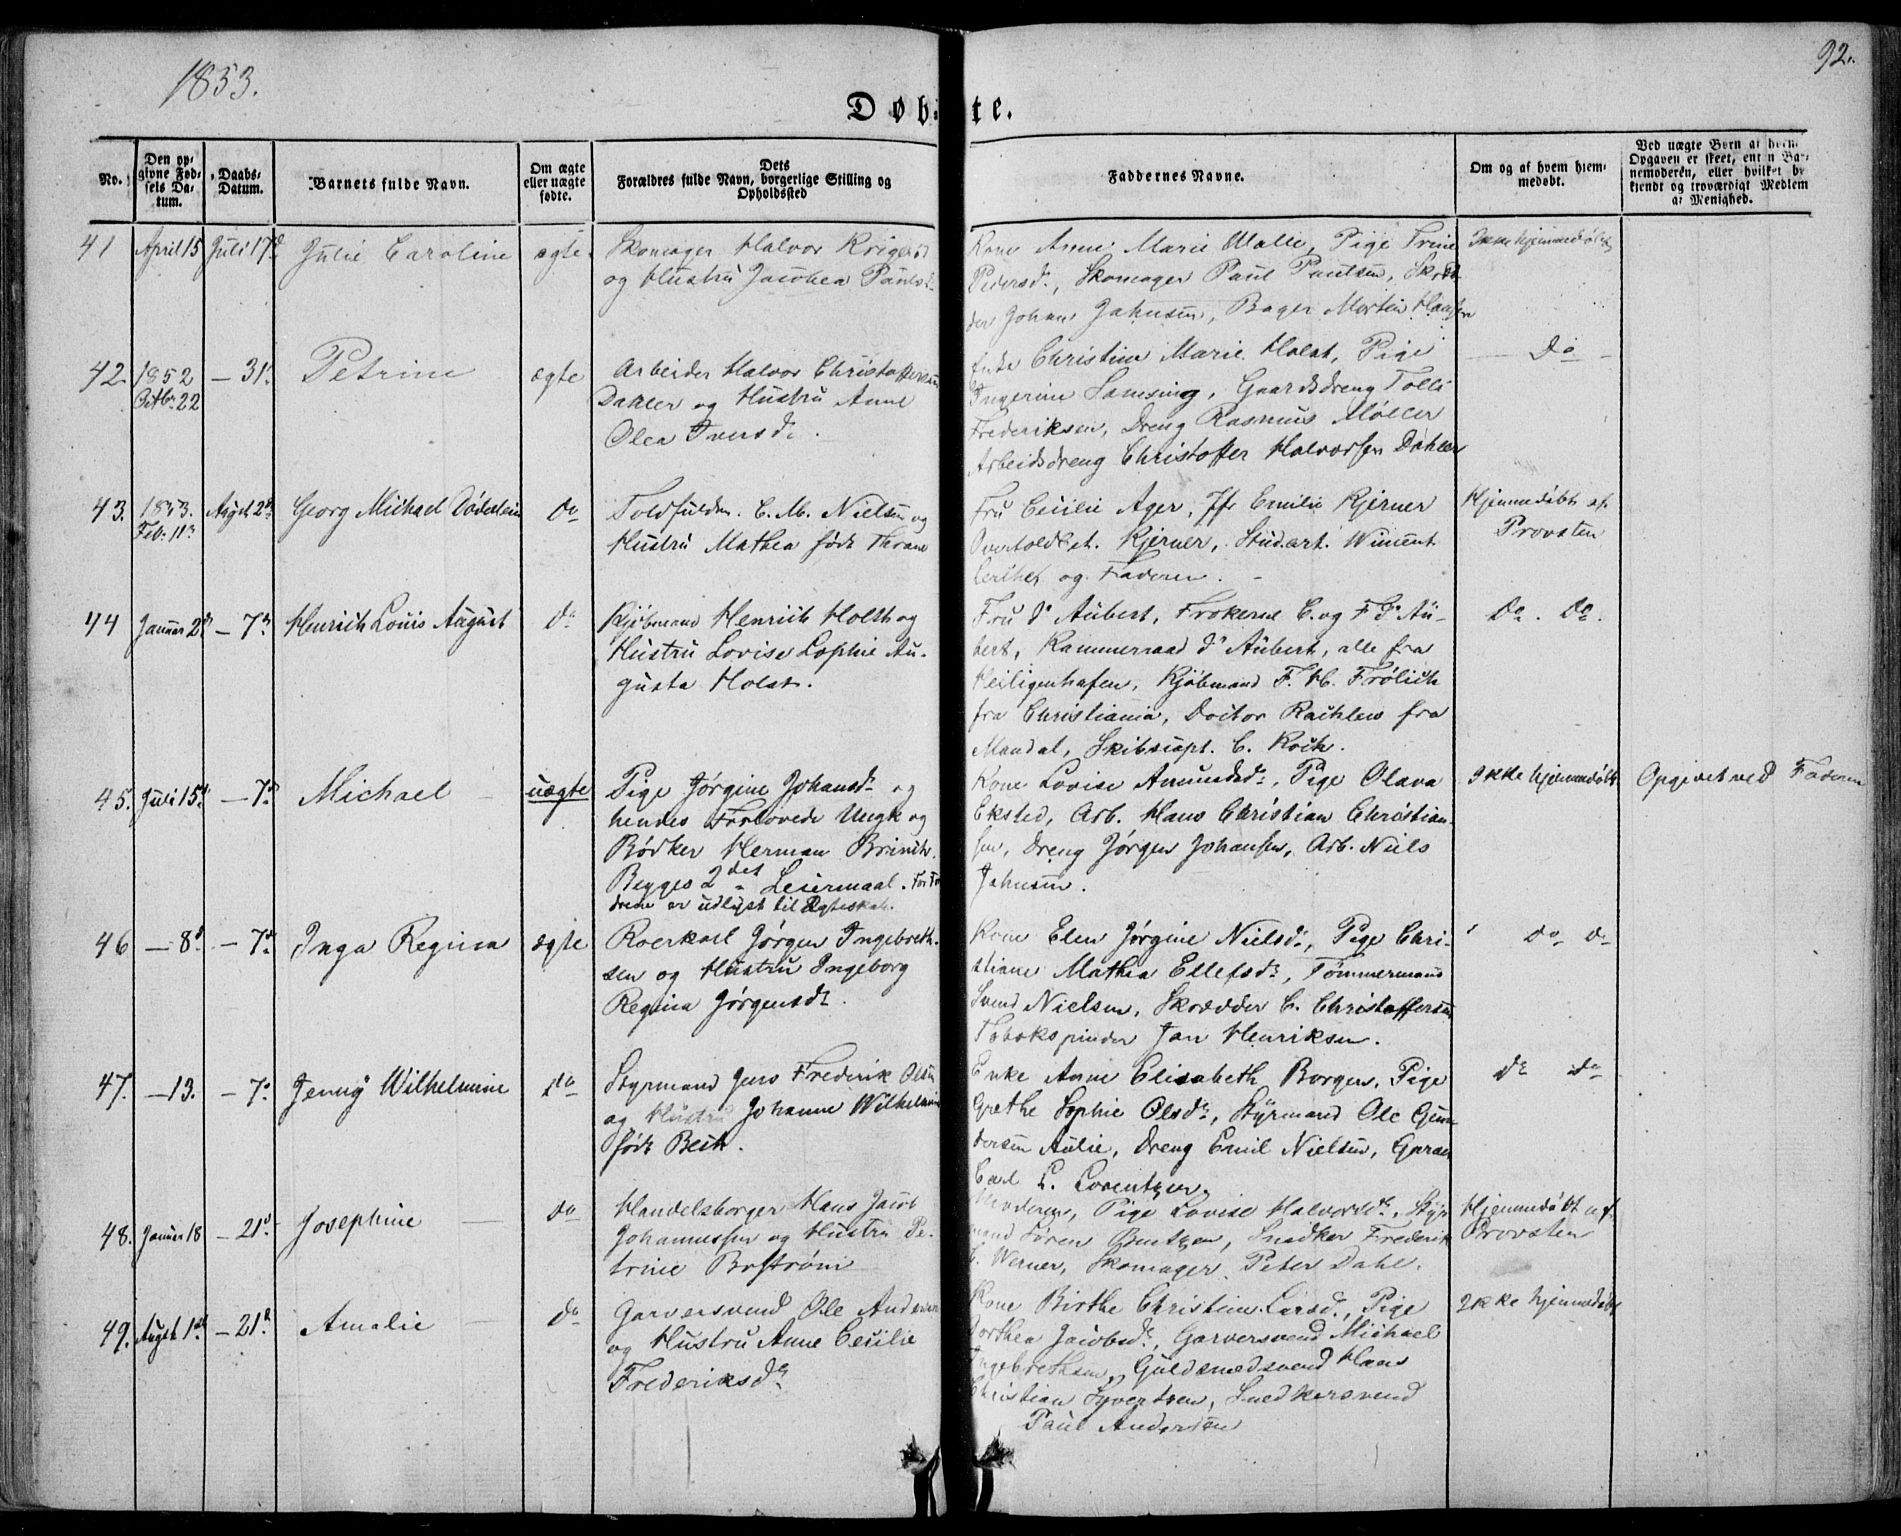 1853.
92.
Døbte.
No.
Den opgivne Fødsels Datum.
Daabs-Datum.
Barnets fulde Navn.
Om ægte eller uægte fødte.
Dets Forældres fulde Navn, borgerlige Stilling og Opholdssted
Faddernes Navne.
Om og af hvem hjemmedøbt.
Ved uægte Børn af hvem Opgaven er skeet, enten Barnemoderen, eller hvilket bekjendt og troværdigt Medlem af Menighed.
41 April 15 Juli 17d Julie Caroline ægte.
Skomager Halvor
og Hustru Jacobea Paulsd.
Kone Anne Marie Malle, Pige Trine
Pedersd., Skomager Paul Paulsen, Skræd
der Johan Jahnsen, Bager Morten Hansen
Ikke hjemmedøbt
42. 1852 Octbr. 22 — 31. Petrine ægte
Arbeider Halvor Christoffersen
Dahler og Hustru Anne
Olea Iversd.
Enke Christine Marie Holst, Pige
Ingerine Samsing, Gaardsdreng Tolle
Frederiksen, Dreng Rasmus Møller
Arbeidsdreng Christoffer Halvorsen Dahler
— Do —
43. 1853. Feb. 11. Augst 2d Georg Michael Døderlein Do
Toldfuldm. C. M. Nielsen og
Hustru Mathea født Thrane
Fru Cecilie Ager, Jfr Emilie Kjerner
Overtoldbet. Kjerner, Stud. art. Wincent
og Faderen.
Hjemmedøbt af
Provsten
44 Januar 2d — 7d Henrich Louis August Do
Kjøbmand Henrich Holst og
Hustru Lovise Sophie Au-
gusta Holst.
Fru d'Aubert, Frøkerne C. og F. d'Au-
bert, Kammerraad d'Aubert, alle fra
Heiligenhafen, Kjøbmand F. H. Frølich
fra Christiania, Doctor Rachlew fra
Mandal, Skibscapt. C. Koch.
Do. Do.
45. Juli 15d — 7d Michael uægte
Pige Jørgine Johansd. og
hendes Forlovede Ungk og
Bødker Herman Brinch.
Begges 2det Leiermaal. For
drene er udlyst til Ægteskab.
Kone Lovise Amundsd., Pige Olava
Eksted, Arb. Hans Christian Christian-
sen, Dreng Jørgen Johansen, Arb. Niels
Jahnsen.
Ikke hjemmedøbt
Opgivet ved Faderen
46 — 8d — 7d Inga Regina ægte
Roerkarl Jørgen Ingebreth-
sen og Hustru Ingeborg
Regina Jørgensd.
Kone Elen Jørgine Nielsd., Pige Chri-
stiane Mathea Ellefsd., Tømmermand
Svend Nielsen, Skrædder C. Christoffersen
Tobakspinder Jan Henriksen.
do do
47. — 13. — 7. Jenny Wilhelmine do
Styrmand Jens Frederik Olsen
og Hustru Johanne Wilhelmine
født Beck.
Enke Anne Elisabeth Borgen, Pige
Grethe Sophie Olsd., Styrmand Ole Gun
dersen Aulie, Dreng Emil Nielsen,
Carl L. Lorentzen.
do do
48. Januar 18 — 21d Josephine do
Handelsborger Hans Jacob
Johannessen og Hustru Pe-
trine Bostrøm
Moderen, Pige Lovise Halvorsd., Styr
mand Søren Bentzen, Snedker Frederik
C. Werner, Skomager Peter Dahl.
Hjemmedøbt af
Provsten
49. Augst 1st — 21d Amalie do
Garversvend Ole Andersen
og Hustru Anne Cecilie
Frederiksd.
Kone Birthe Christine Larsd., Pige
Dorthea Jacobsd., Garversvend Michael
Ingebrethsen, Guldsmedsvend Hans
Christian Syvertsen, Snedkersvend
Paul Andersen
Ikke hjemmedøbt